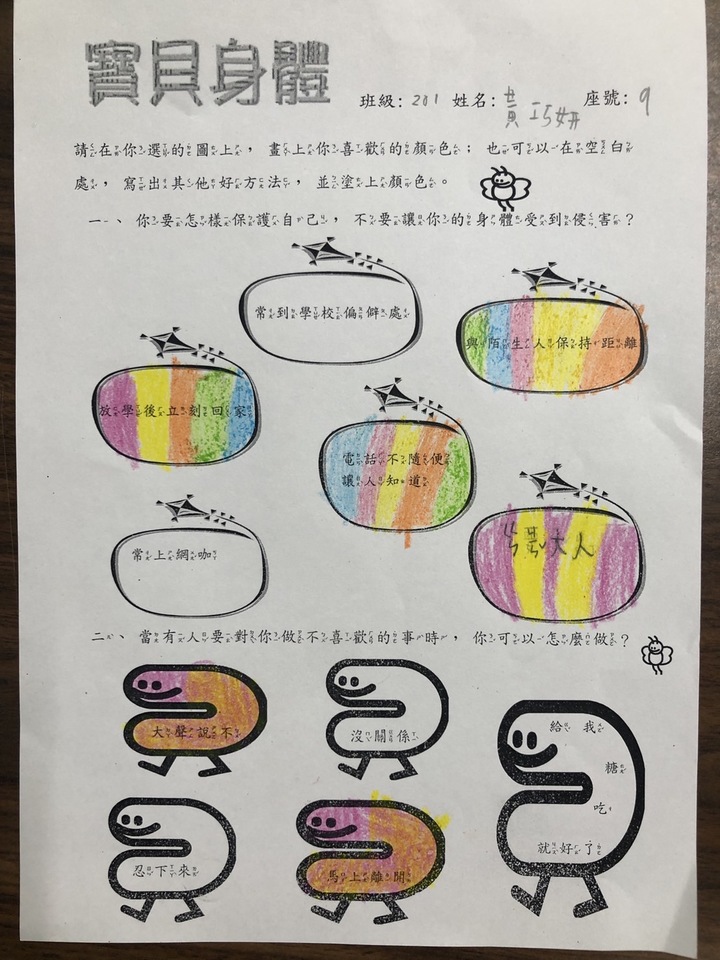 寶貝身體
班級：201 姓名：黃巧妍 座號：9
請在你選的圖上，畫上你喜歡的顏色；也可以在空白
處，寫出其他好方法，並塗上顏色。
一、你要怎樣保護自己，不要讓你的身體受到侵害？
常到學校偏僻處
與陌生人保持距離
放學後立刻回家
電話不隨便
讓人知道
常上網咖
大人
二、當有人要對你做不喜歡的事時，你可以怎麼做？
大聲說不
沒關係
給我
糖
吃
就好了
忍下來
馬上離開